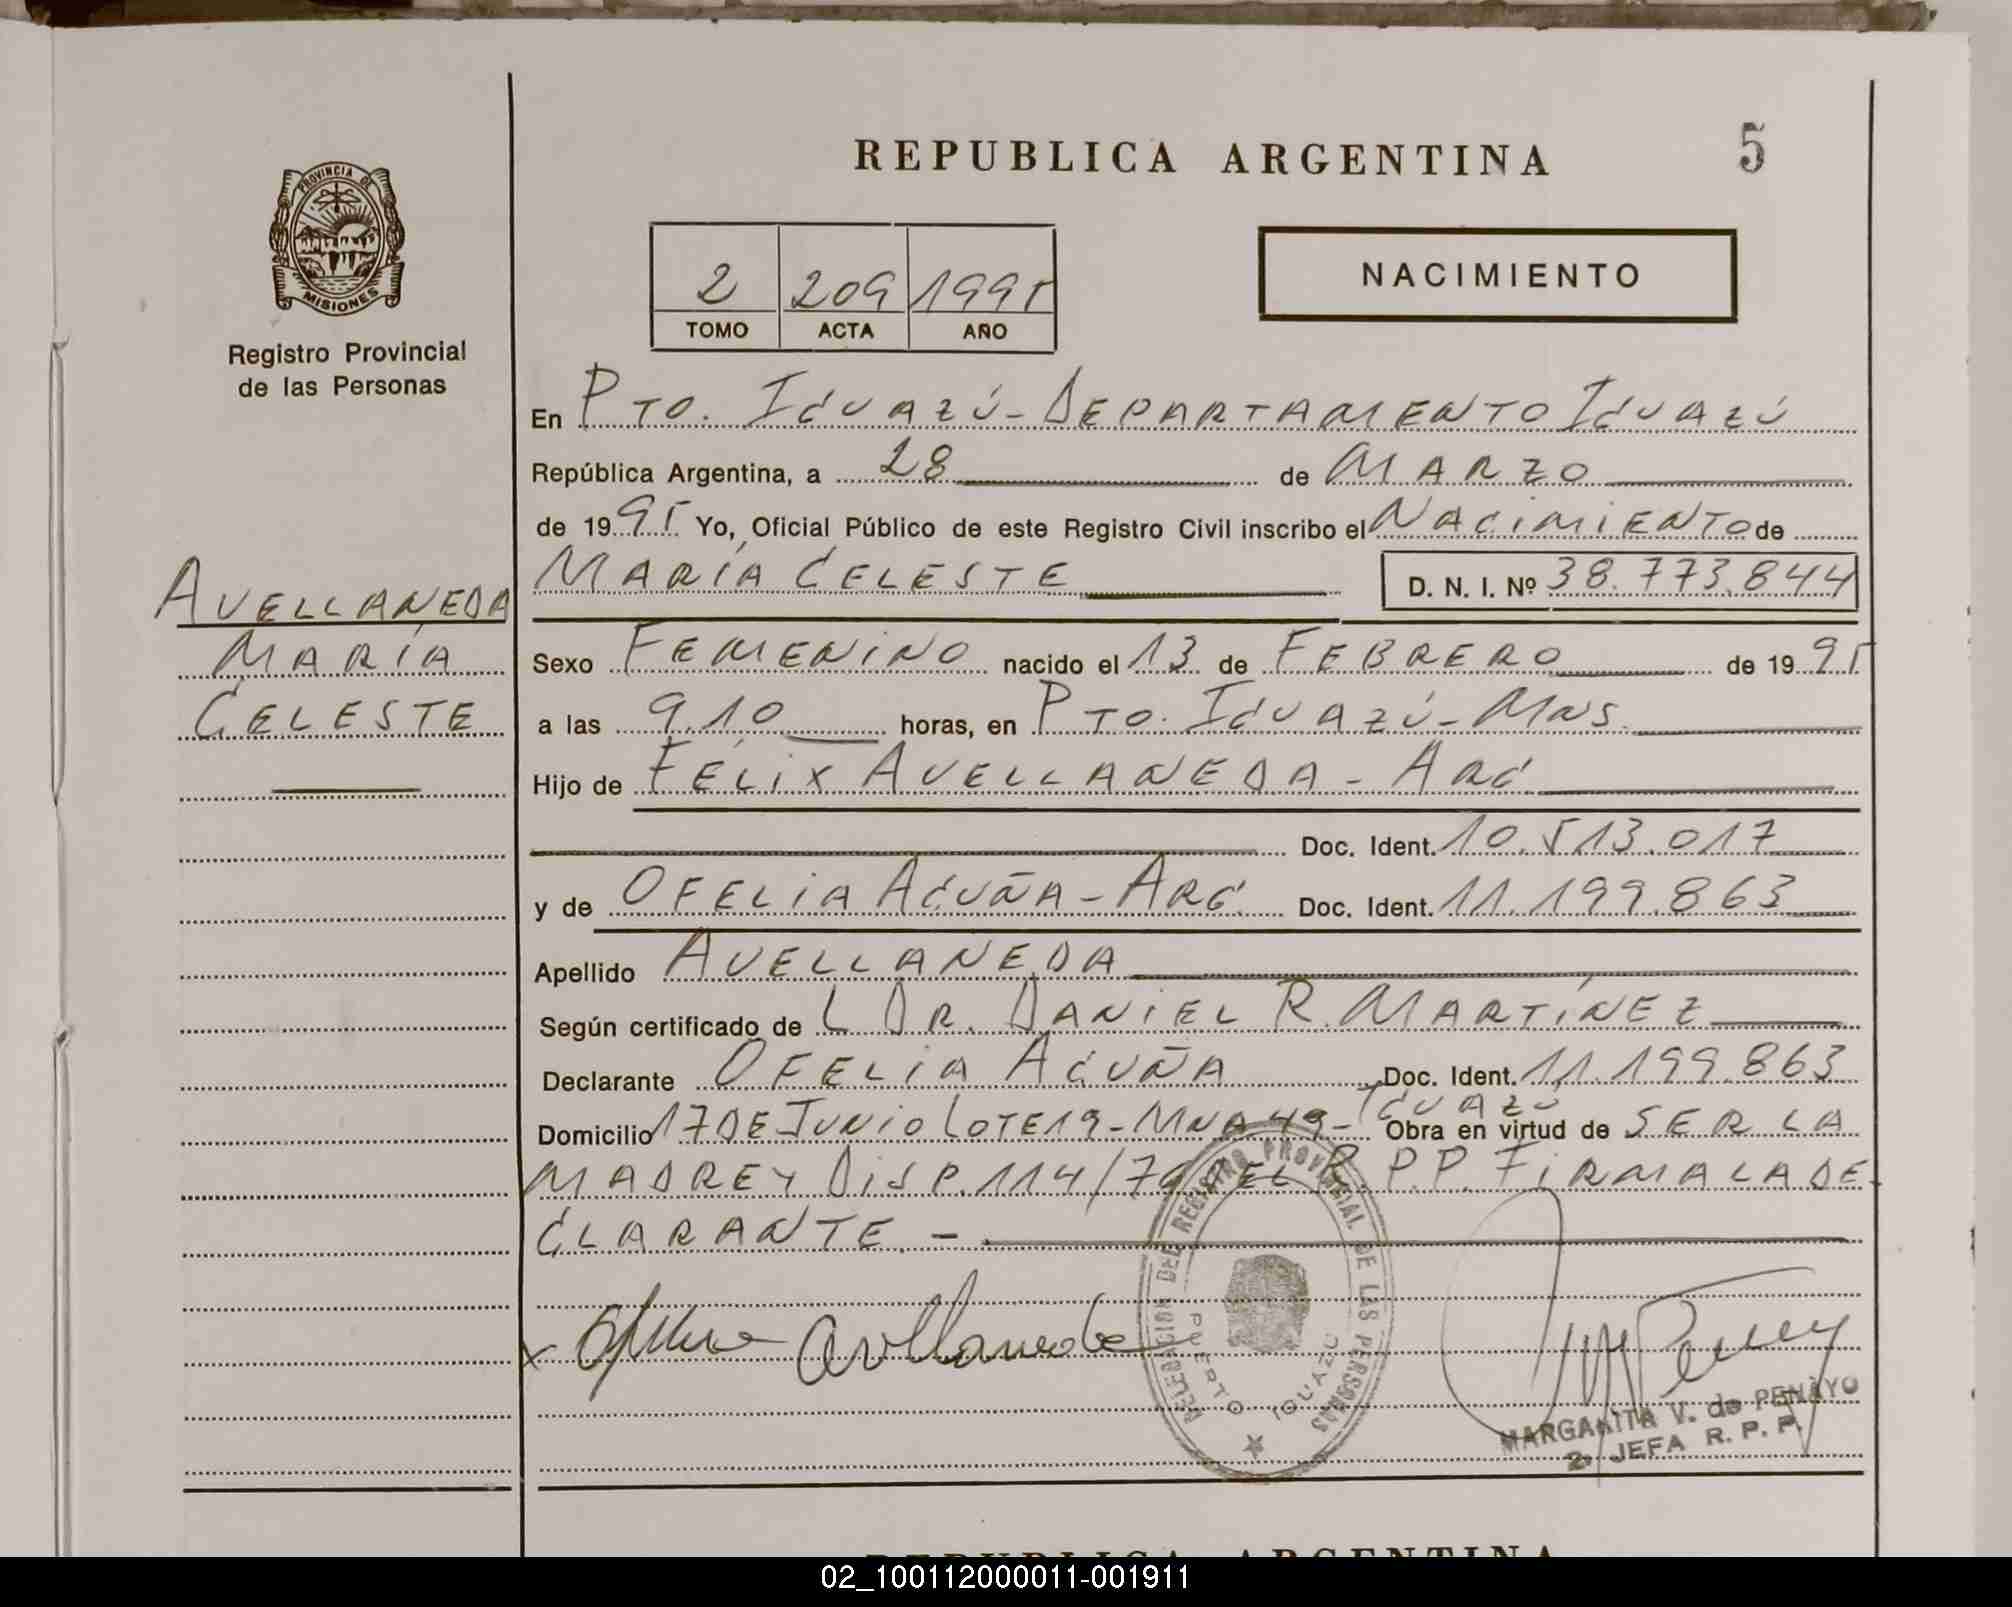 REPUBLICA ARGENTINA
5
PROVINCIA DE
MISIONES
Registro Provincial
de las Personas
2 209 1995
TOMO ACTA AÑO
NACIMIENTO
En PTO. IGUAZÚ - DEPARTAMENTO IGUAZÚ
República Argentina, a 28 de MARZO
de 1995 Yo, Oficial Público de este Registro Civil inscribo el NACIMIENTO de
MARÍA CELESTE D. N. I. Nº 38.773.844
AVELLANEDA
MARÍA
CELESTE
Sexo FEMENINO nacido el 13 de FEBRERO de 1995
a las 9.10 horas, en PTO. IGUAZÚ - MNS.
Hijo de FÉLIX AVELLANEDA - ARG
Doc. Ident. 10.513.017
y de OFELIA ACUÑA - ARG. Doc. Ident. 11.199.863
Apellido AVELLANEDA
Según certificado de L DR. DANIEL R. MARTÍNEZ
Declarante OFELIA ACUÑA Doc. Ident. 11.199.863
Domicilio 17 DE JUNIO LOTE 19 - MNA 49 - IGUAZÚ Obra en virtud de SER LA
MADRE Y DISP. 114/79 DEL R. P. P. FIRMA LA DE
CLARANTE. -
x Avellaneda
DELEGACION DEL REGISTRO PROVINCIAL DE LAS PERSONAS
PUERTO IGUAZU
MARGARITA V. de PENAYO
2. JEFA R. P. P.
REPUBLICA ARGENTINA
02_100112000011-001911